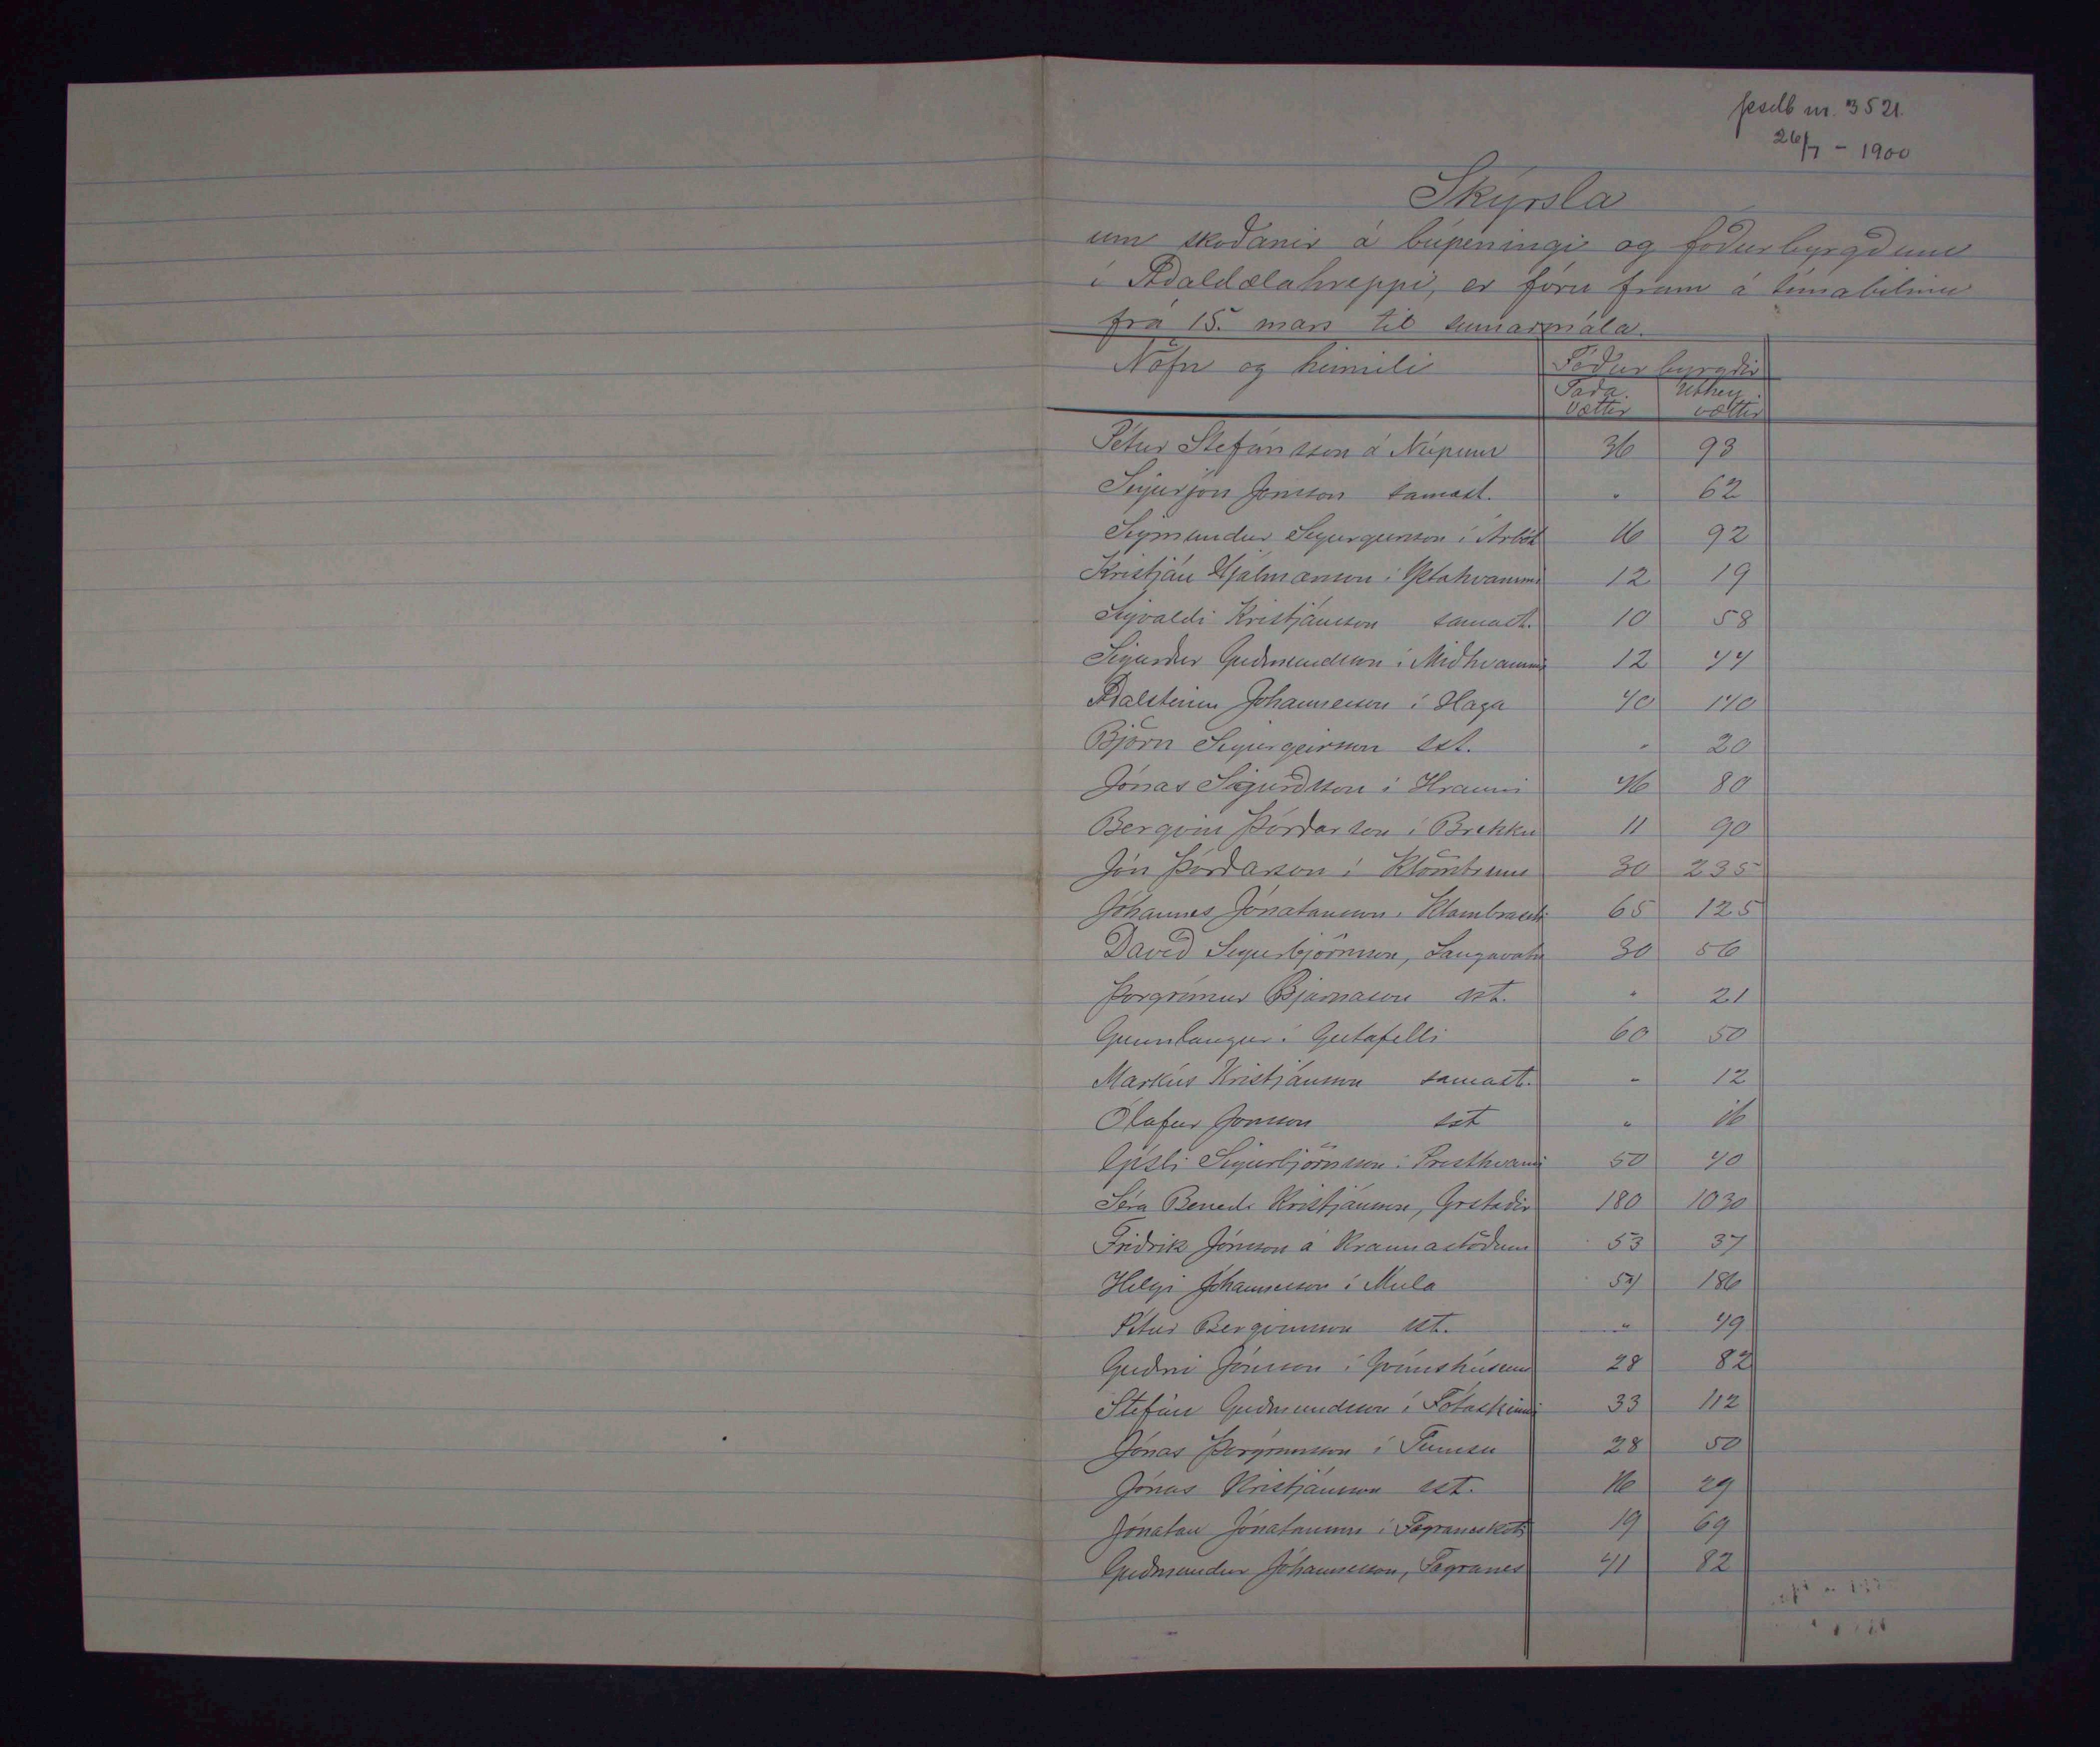 þsdb nr. 3521.
26/7 - 1900
Skýrsla
um skoðanir á búpeningi og fóðurbyrgðum
í Aðaldælahreppi, er fóru fram á tímabilinu
frá 15. mars til sumarmála.
Nöfn og heimili Fóðurbyrgðir
Taða vættir Úthey vættir
Pétur Stefánsson á Núpum 36 93
Sigurjón Jónsson samast. " 62
Sigmundur Sigurgeirsson í Árbót 16 92
Kristján Hjálmarsson í Ytrahvammi 12 19
Sigvaldi Kristjánsson samast. 10 58
Sigurður Guðmundsson í Miðhvammi 12 44
Aðalsteinn Jóhannesson í Haga 40 140
Björn Sigurgeirsson sst. " 20
Jónas Sigurðsson í Hrauni 46 80
Bergvin Þórðarson í Brekku 11 90
Jón Þórðarson í Klömbrum 30 235
Jóhannes Jónatansson, Klambraseli 65 125
Davíð Sigurbjörnsson, Langavatn 30 56
Þorgrímur Bjarnason sst. " 21
Gunnlaugur í Geitafelli 60 50
Markús Kristjánsson samast. " 12
Ólafur Jónsson sst " 16
Gísli Sigurbjörnsson í Presthvami 50 40
Séra Bened. Kristjánsson, Grstaðir 180 1030
Friðrik Jónsson á Hraunastöðum 53 37
Helgi Jóhannesson í Múla 54 186
Pétur Bergvinsson sst. " 49
Guðni Jónsson í Grímshúsum 28 82
Stefán Guðmundsson í Fótaskinni 33 112
Jónas Þorgrímsson í Tumsu 28 50
Jónas Kristjánsson sst. 16 29
Jónatan Jónatansson í Fagraneskoti 19 69
Guðmundur Jóhannesson, Fagranes 41 82